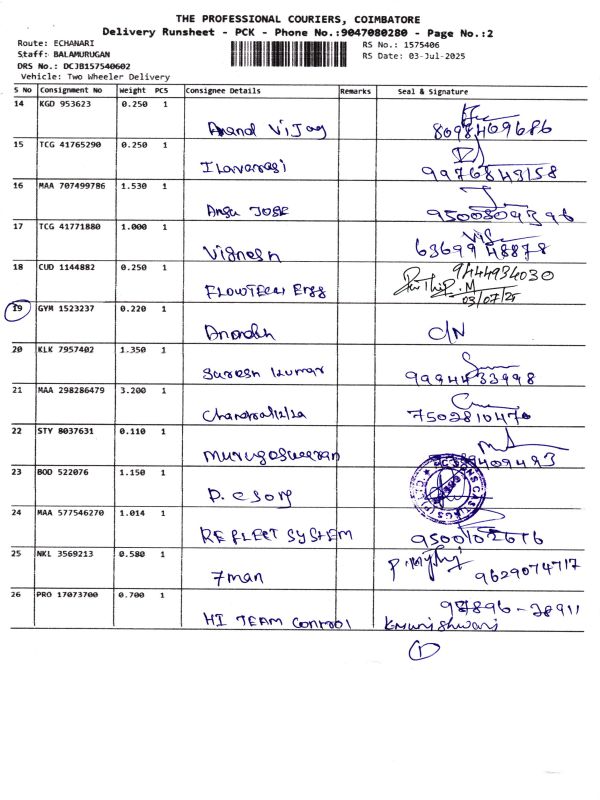 THE PROFESSIONAL COURIERS, COIMBATORE
Delivery Runsheet - PCK - Phone No.:9047080280 - Page No.:2
Route: ECHANARI
RS No.: 1575406
Staff: BALAMURUGAN
RS Date: 03-Jul-2025
DRS No.: DCJB157540602
Vehicle: Two Wheeler Delivery
S No Consignment No Weight PCS Consignee Details Remarks Seal & Signature
14 KGD 953623 0.250 1
Anand Vijay 8098409686
15 TCG 41765290 0.250 1
Ilavarasi 9976843158
16 MAA 707499786 1.530 1
Ansu JOSE 9500809396
17 TCG 41771880 1.000 1
Vignesh 6369948878
18 CUD 1144882 0.250 1 9444934030
FLOWTECH Engg 03/07/25
19 GYM 1523237 0.220 1
Anandh C/N
20 KLK 7957402 1.350 1
Suresh Kumar 9994433998
21 MAA 298286479 3.200 1
7502810470
22 STY 8037631 0.110 1
Murugaswearan
23 BOD 522076 1.150 1
24 MAA 577546270 1.014 1
REFLECT SYSTEM 9500102676
25 NKL 3569213 0.580 1
7man 9629074717
26 PRO 17073700 0.700 1 97896-28911
HI TEAM Control Kmunishwari
1